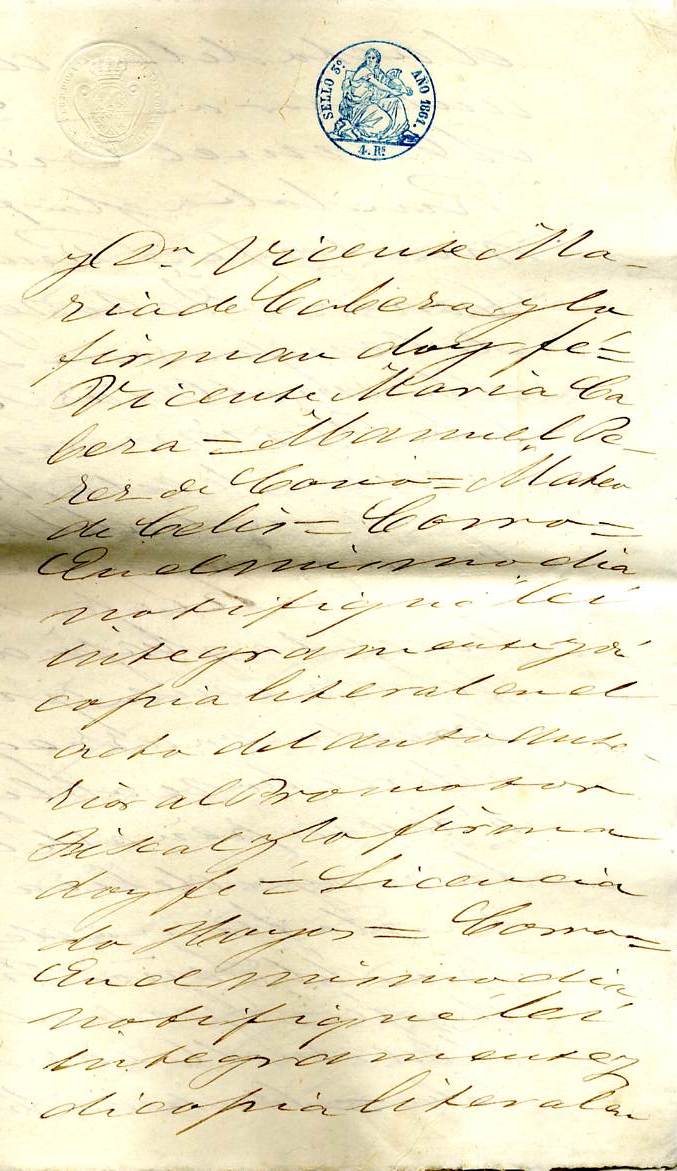 SELLO 3º AÑO 1861.
4. Rs
y Dn Vicente Ma-
ria de Cabeza y lo
firman doy fé =
Vicente Maria Ca
beza = Manuel Pe-
rez de Cosio = Mateo
de Celis = Corro =
En el mismo dia
notifiqué leí
integramente y dí
copia literal en el
acto del auto ante-
rior al Promotor
Fiscal y lo firma
doy fé = Licencia
do Hoyos = Corro =
En el mismo dia
notifiqué leí
integramente y
di copia literal en